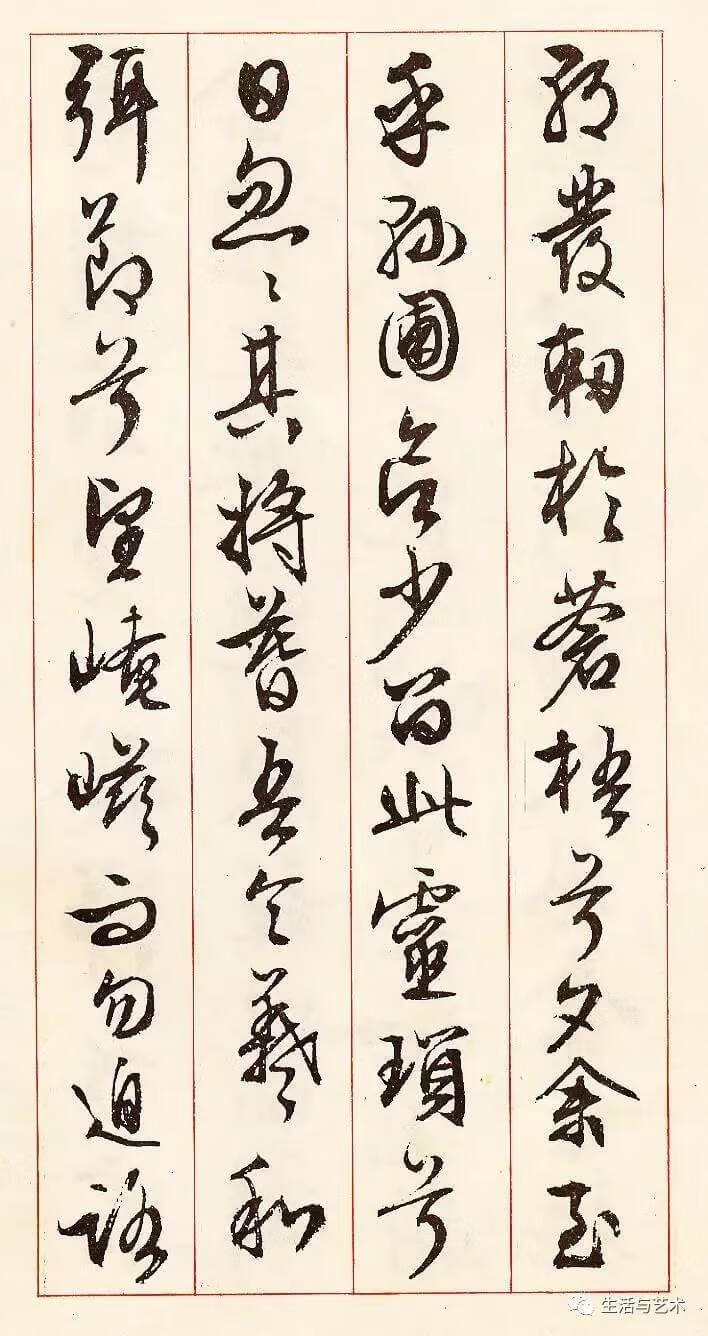 朝發軔於蒼梧兮夕余至
乎縣圃欲少留此靈瑣兮
日忽〻其將暮吾令羲和
弭節兮望崦嵫而勿迫路
生活与艺术